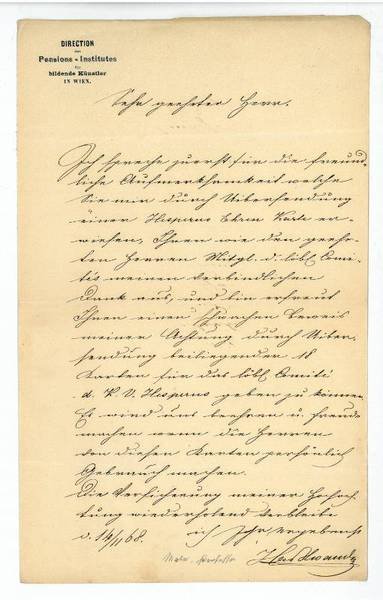 DIRECTION
des
Pensions-Institutes
für
bildende Künstler
IN WIEN.
Sehr geehrter Herr.
Ich spreche zuerst für die freund-
liche Aufmerksamkeit welche
Sie mir durch Uebersendung
einer Hesperus Ehren Karte er-
wiesen, Ihnen wie den geehr-
ten Herren Mitgl. d. löbl. Comi-
tés meinen verbindlichen
Dank aus, und bin erfreut
Ihnen einen schwachen Beweis
meiner Achtung durch Ueber-
sendung beiliegender 18
Karten für das löbl. Comité
d. K. V. Hesperus geben zu können
Es wird uns beehren u. freude
machen wenn die Herren
von diesen Karten persönlich
Gebrauch machen.
Die Versicherung meiner Hochach-
tung wiederholend verbleibe
ich Ihr ergebenst
d. 14/1 68.